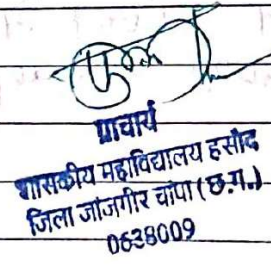 प्राचार्य
शासकीय महाविद्यालय हसौद
जिला जांजगीर चांपा (छ.ग.)
0638009